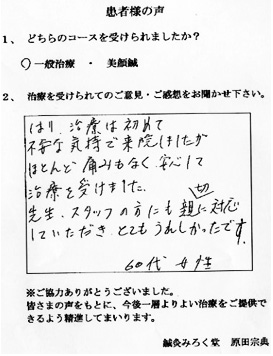 患者様の声
1、 どちらのコースを受けられましたか?
○一般治療 ・ 美顔鍼
2、 治療を受けられてのご意見・ご感想をお聞かせ下さい。
はり治療は初めて
不安な気持で来院しましたが
ほとんど痛みもなく、安心して
治療を受けました。
先生、スタッフの方にも親切に対応
していただき とてもうれしかったです。
60代 女性
※ご協力ありがとうございました。
皆さまの声をもとに、今後一層よりよい治療をご提供で
きるよう精進してまいります。
鍼灸みろく堂 原田宗典